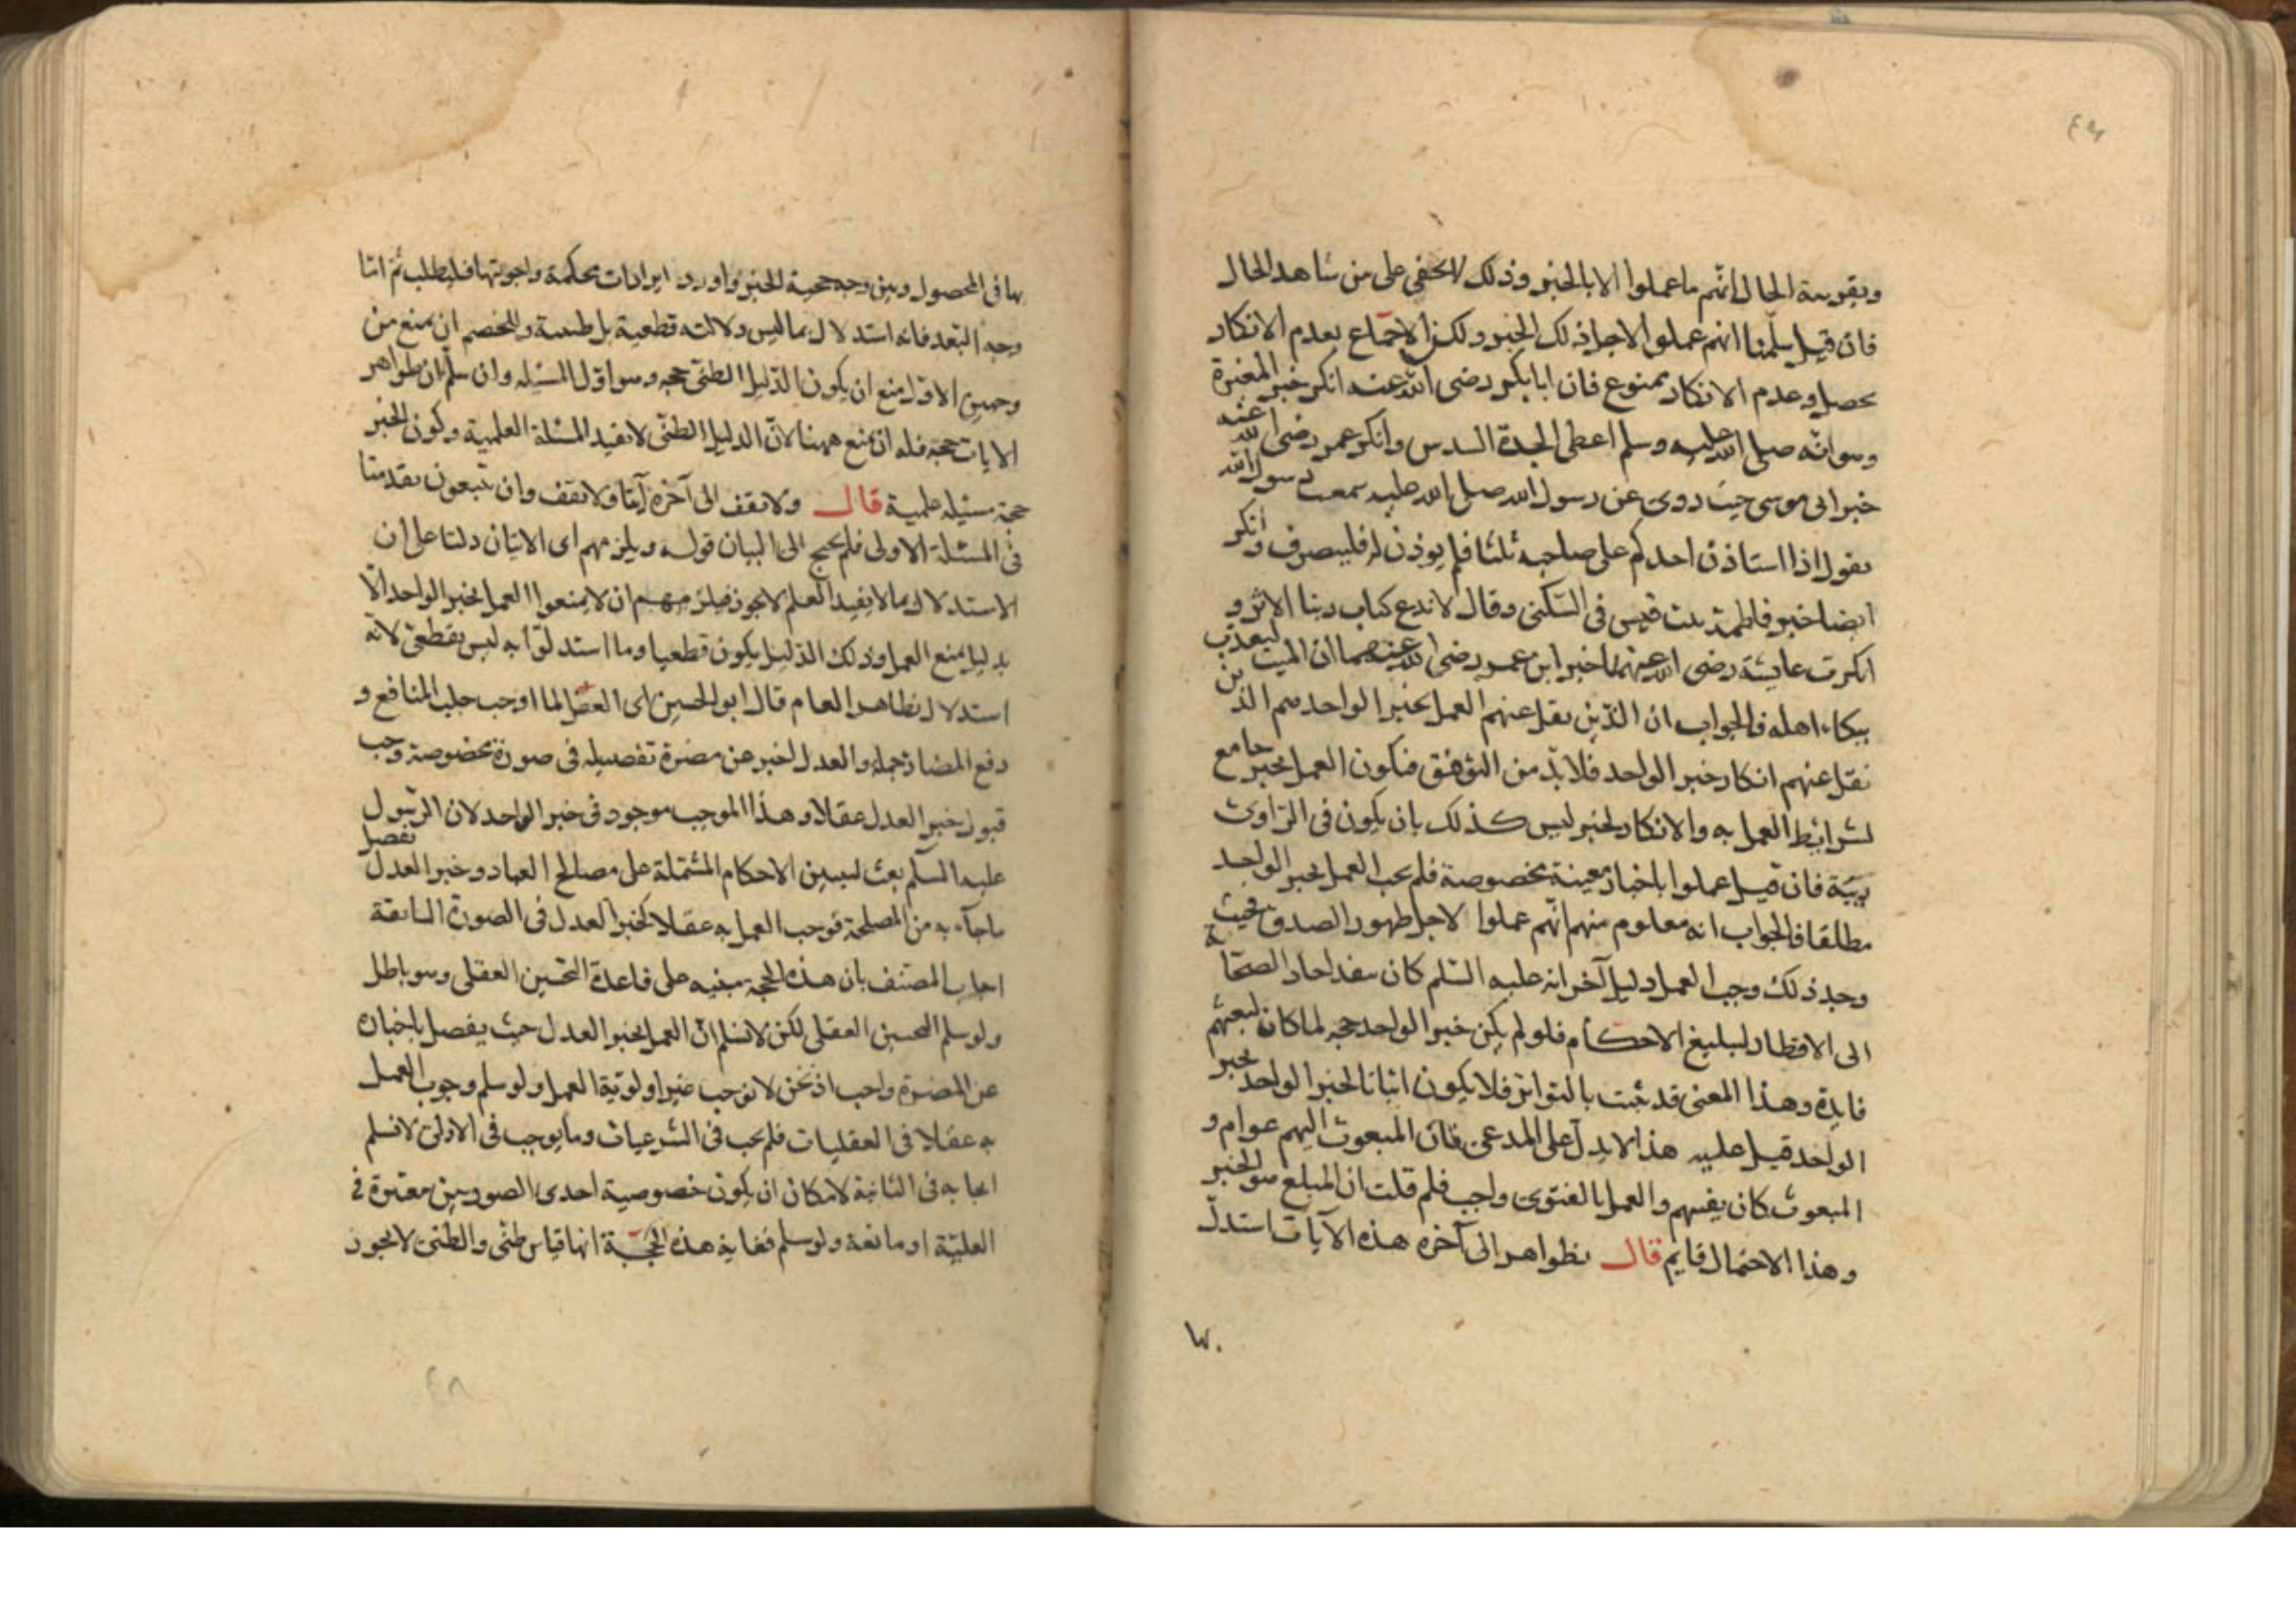 وبقرينة الحال انهم ما عملوا الا بالخبر وذلك لا يخفى على من شاهد الحال
فان قيل سلمنا انهم عملوا لاجل ذلك الخبر ولكن الاجماع بعدم الانكار
يحصل وعدم الانكار ممنوع فان ابا بكر رضى الله عنه انكر خبر المغيرة
وهو انه صلى الله عليه وسلم اعطى الجدة السدس وانكر عمر رضى الله عنه
خبر ابى موسى حيث روى عن رسول الله صلى الله عليه سمعت رسول الله
يقول اذا استاذن احدكم على صاحبه ثلثا فلم يوذن له فلينصرف وانكر
ايضا خبر فاطمة بنت قيس فى السكنى وقال لا ندع كتاب ربنا الاثر و
انكرت عايشة رضى الله عنها خبر ابن عمر رضى الله عنهما ان الميت ليعذب
ببكاء اهله فالجواب ان الذين نقل عنهم العمل بخبر الواحد هم الذين
نقل عنهم انكار خبر الواحد فلا بد من التوفيق فيكون العمل بخبر جامع
لشرائط العمل به والانكار لخبر ليس كذلك بان يكون فى الراوى
ريبة فان قيل عملوا باخبار معينة مخصوصة فلم يجب العمل بخبر الواحد
مطلقا فالجواب انه معلوم منهم انهم عملوا لاجل ظهور الصدق فحيث
وجد ذلك وجب العمل دليل آخر انه عليه السلم كان ينفد احاد الصحابة
الى الاقطار لتبليغ الاحكام فلو لم يكن خبر الواحد حجة لما كان لبعثهم
فايدة وهذا المعنى قد ثبت بالتواتر فلا يكون اثباتا لخبر الواحد بخبر
الواحد قيل عليه هذا لا يدل على المدعى فان المبعوث اليهم عوام و
المبعوث كان يفتيهم والعمل بالفتوى واجب فلم قلت ان المبلغ هو الخبر
وهذا الاحتمال قايم قال بظواهر الى آخره هذه الآيات استدل
بها فى المحصول وبين وجه حجية الخبر واورد ايرادات محكمة واجوبتها فليطلب ثم اما
وجه البعد فانه استدلال بما ليس دلالته قطعية بل ظنية وللخصم ان يمنع من
وجهين الاول منع ان يكون الدليل الظنى حجه وهو اول المسئله وان سلم ان ظواهر
الايات حجة فله ان يمنع ههنا لان الدليل الظنى لا يفيد المسئلة العلمية وكون الخبر
حجة مسئله علمية قال ولا تقف الى آخره اما ولا تقف وان تتبعون تقدمتا
فى المسئلة الاولى فلم يحتج الى البيان قوله ويلزمهم اى الايتان دلتا على ان
الاستدلال بما لا يفيد العلم لا يجوز فيلزمهم ان لا يمنعوا العمل بخبر الواحد الا
بدليل يمنع العمل وذلك الدليل يكون قطعيا وما استدلوا به ليس بقطعى لانه
استدلال بظاهر العام قال ابو الحسين اى العقل لما اوجب جلب المنافع و
دفع المضار جملة والعدل لخبر عن مضرة تفصيله فى صورة مخصوصة وجب
قبول خبر العدل عقلا وهذا الموجب موجود فى خبر الواحد لان الرسول
عليه السلم بعث لتبيين الاحكام المشتملة على مصالح العباد وخبر العدل تفصيل
ماجآء به من المصلحة فوجب العمل به عقلا كخبر العدل فى الصورة السابقة
اجاب المصنف بان هذه الحجة مبنيه على قاعدة التحسين العقلى وهو باطل
ولو سلم التحسين العقلى لكن لا نسلم ان العمل بخبر العدل حيث يفصل باخباره
عن المضرة واجب اذ نحن لا نوجب غير اولوية العمل ولو سلم وجوب العمل
به عقلا فى العقليات فلم يجب فى الشرعيات وما يوجب فى الاولى لا نسلم
ايجابه فى الثانية لامكان ان يكون خصوصية احدى الصورتين معتبرة فى
العلية او مانعة ولو سلم فغاية هذه الحجة انها قياس ظنى والظنى لا يجوز